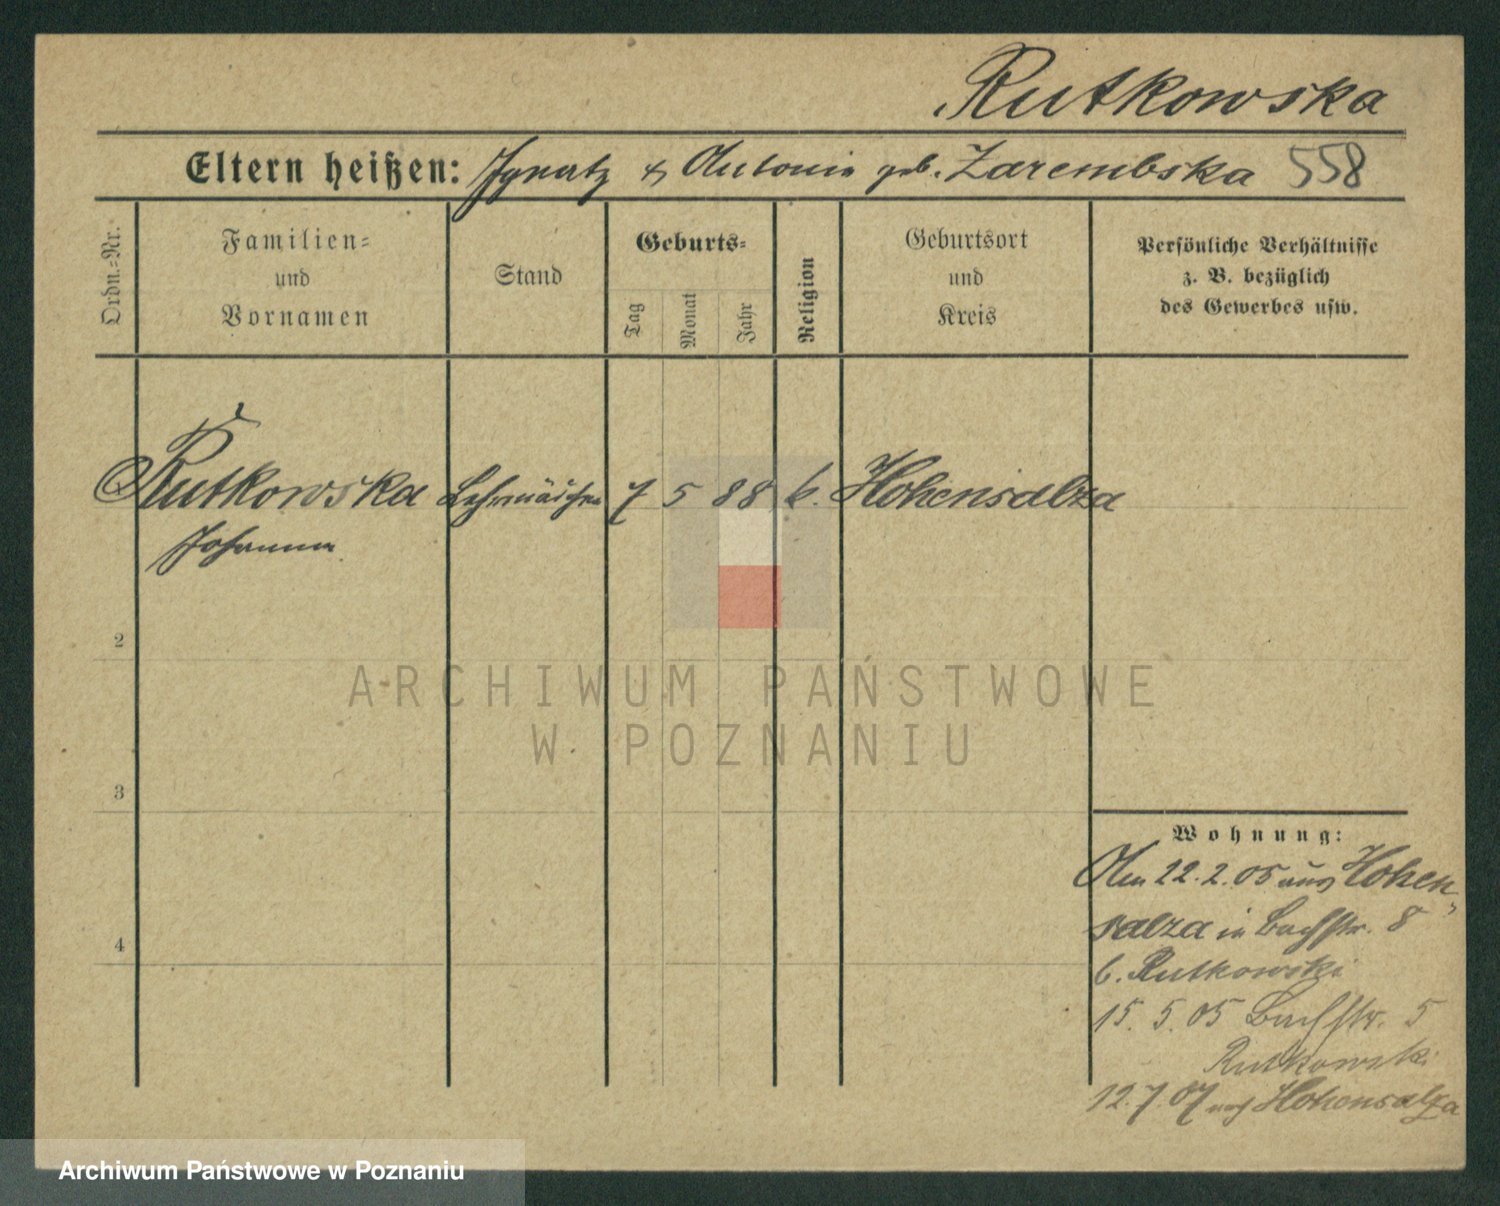 Rutkowska
Eltern heißen: Ignatz & Antonie geb. Zarembska 558
Ordn.=Nr.
Familien=
und
Vornamen
Stand
Geburts=
Tag
Monat
Jahr
Religion
Geburtsort
und
Kreis
Persönliche Verhältnisse
z. B. bezüglich
des Gewerbes usw.
Rutkowska Lehrmädchen 7 5 88 k. Hohensalza
Johanna
2
ARCHIWUM PAŃSTWOWE
W POZNANIU
3
4
Wohnung:
Am 22.2.05 aus Hohen-
salza in Bachstr. 8
b. Rutkowski
15.5.05 Bachstr. 5
Rutkowski
12.7.07 nach Hohensalza
Archiwum Państwowe w Poznaniu